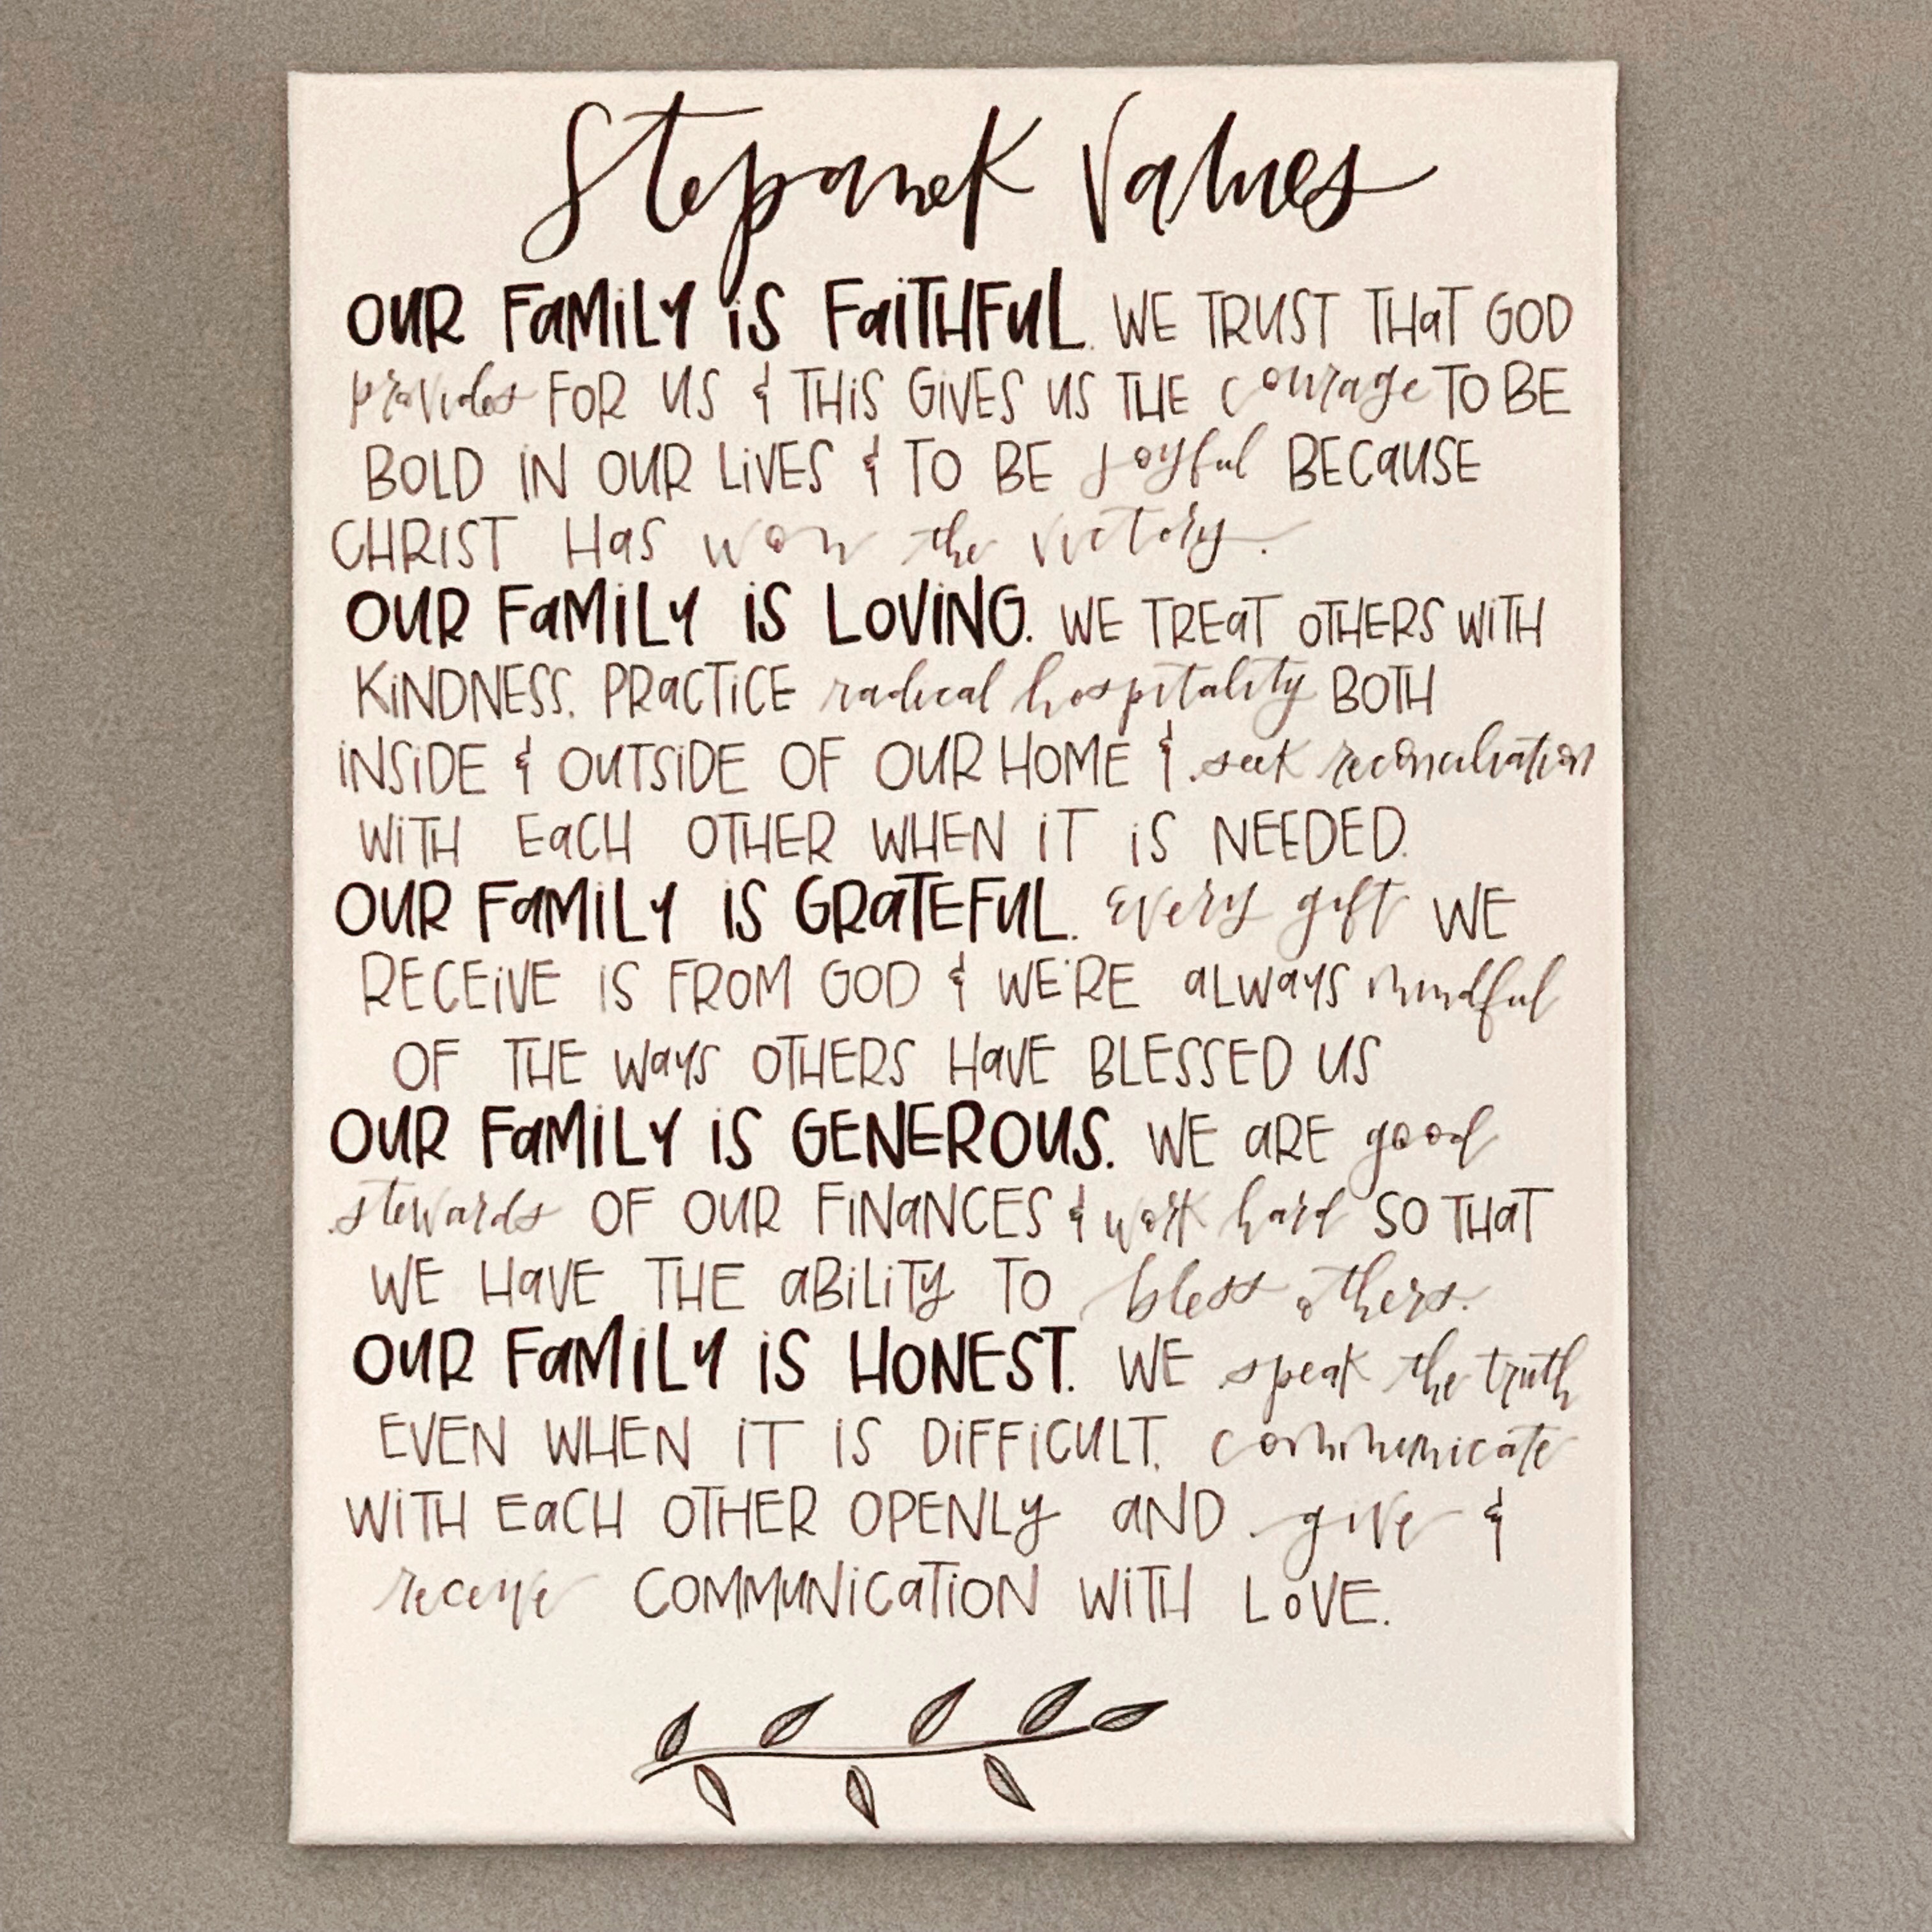 Stepanek Values
OUR FAMILY IS FAITHFUL. WE TRUST THAT GOD
provides FOR US & THIS GIVES US THE courage TO BE
BOLD IN OUR LIVES & TO BE joyful BECAUSE
CHRIST HAS won the victory.
OUR FAMILY IS LOVING. WE TREAT OTHERS WITH
KINDNESS, PRACTICE radical hospitality BOTH
INSIDE & OUTSIDE OF OUR HOME & seek reconciliation
WITH EACH OTHER WHEN IT IS NEEDED.
OUR FAMILY IS GRATEFUL. every gift WE
RECEIVE IS FROM GOD & WE'RE ALWAYS mindful
OF THE WAYS OTHERS HAVE BLESSED US
OUR FAMILY IS GENEROUS. WE ARE good
stewards OF OUR FINANCES & work hard SO THAT
WE HAVE THE ABILITY TO bless others.
OUR FAMILY IS HONEST. WE speak the truth
EVEN WHEN IT IS DIFFICULT, communicate
WITH EACH OTHER OPENLY AND give &
receive COMMUNICATION WITH LOVE.